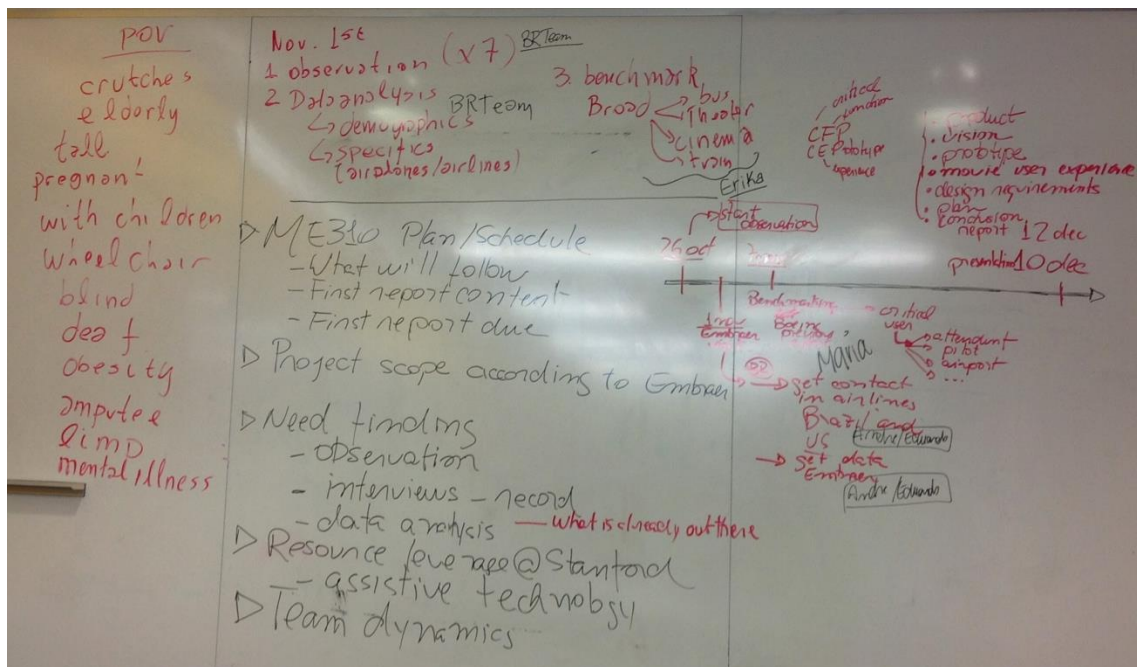 POV
crutches
elderly
tall
pregnant
with children
wheel chair
blind
deaf
obesity
amputee
limp
mental illness
Nov. 1st
1 observation (x7) BRTeam
2 Data analysis BRTeam
↳ demographics
↳ specifics
(airplanes/airlines)
3. benchmark
Broad → bus
→ theater
→ cinema
→ train
Erika
▷ ME310 Plan/Schedule
- What will follow
- First report content
- First report due
▷ Project scope according to Embraer
▷ Need finding
- observation
- interviews - record
- data analysis — what is already out there
▷ Resource leverage @ Stanford
- assistive technology
▷ Team dynamics
critical
function
CFP
CEPrototype
experience
product
• vision
• prototype
• movie user experience
• design requirements
• plan
• conclusion
report 12 dec
presentation 10 dec
start
observation
26 oct
Benchmarking
Embraer
Boeing
Maria
- critical
user
attendent
pilot
airport
...
→ get contact
in airlines
Brazil and
US Andre/Eduardo
→ get data
Embraer
Andre/Eduardo